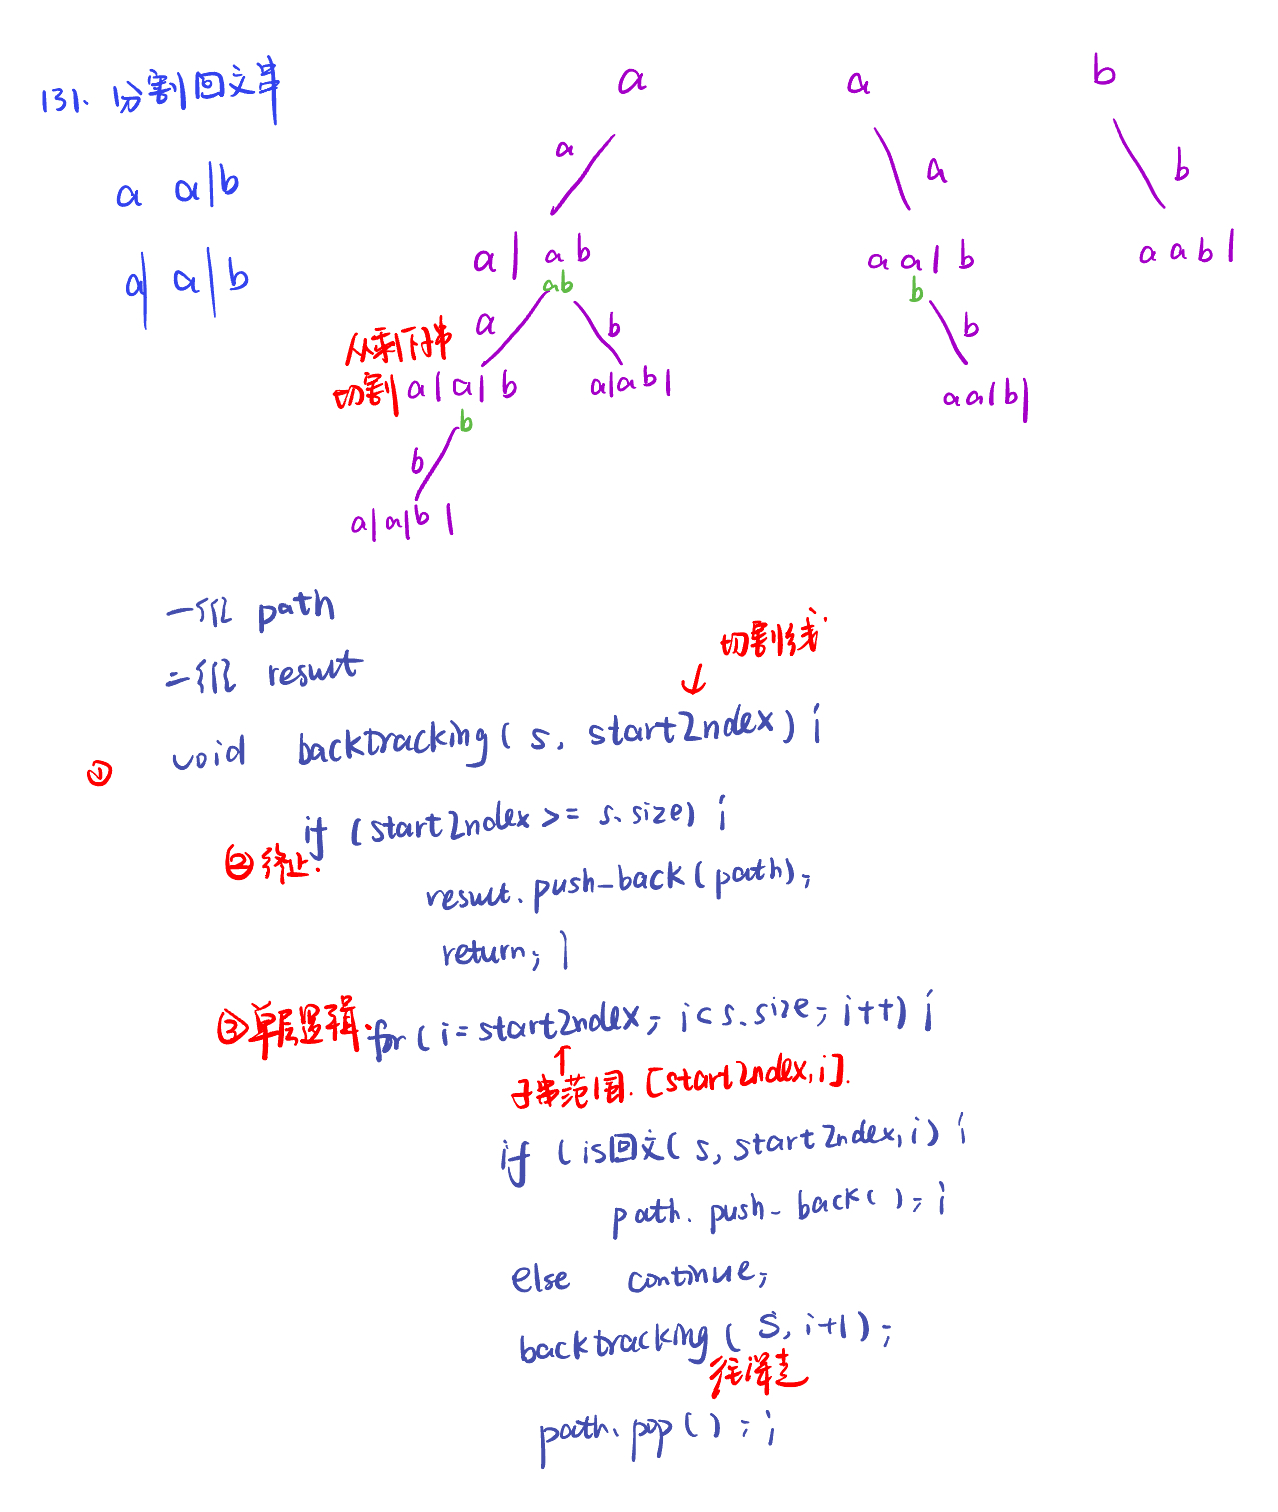 131. 分割回文串
a a b
a a|b
a| a|b
a
a
a| ab
ab
a
从剩下子串
切割
a|a|b
b
b
a|a|b|
b
a|ab|
a
a
aa|b
b
b
aa|b|
b
b
aab|
一维 path
二维 result
切割线
↓
① void backtracking(s, startIndex) {
② 终止. if (startIndex >= s.size) {
result.push_back(path);
return; }
③ 单层逻辑. for (i = startIndex; i < s.size; i++) {
↑
子串范围. [startIndex, i].
if (is回文(s, startIndex, i) {
path. push_back( ); }
else continue;
backtracking( s, i+1);
path. pop( ); }